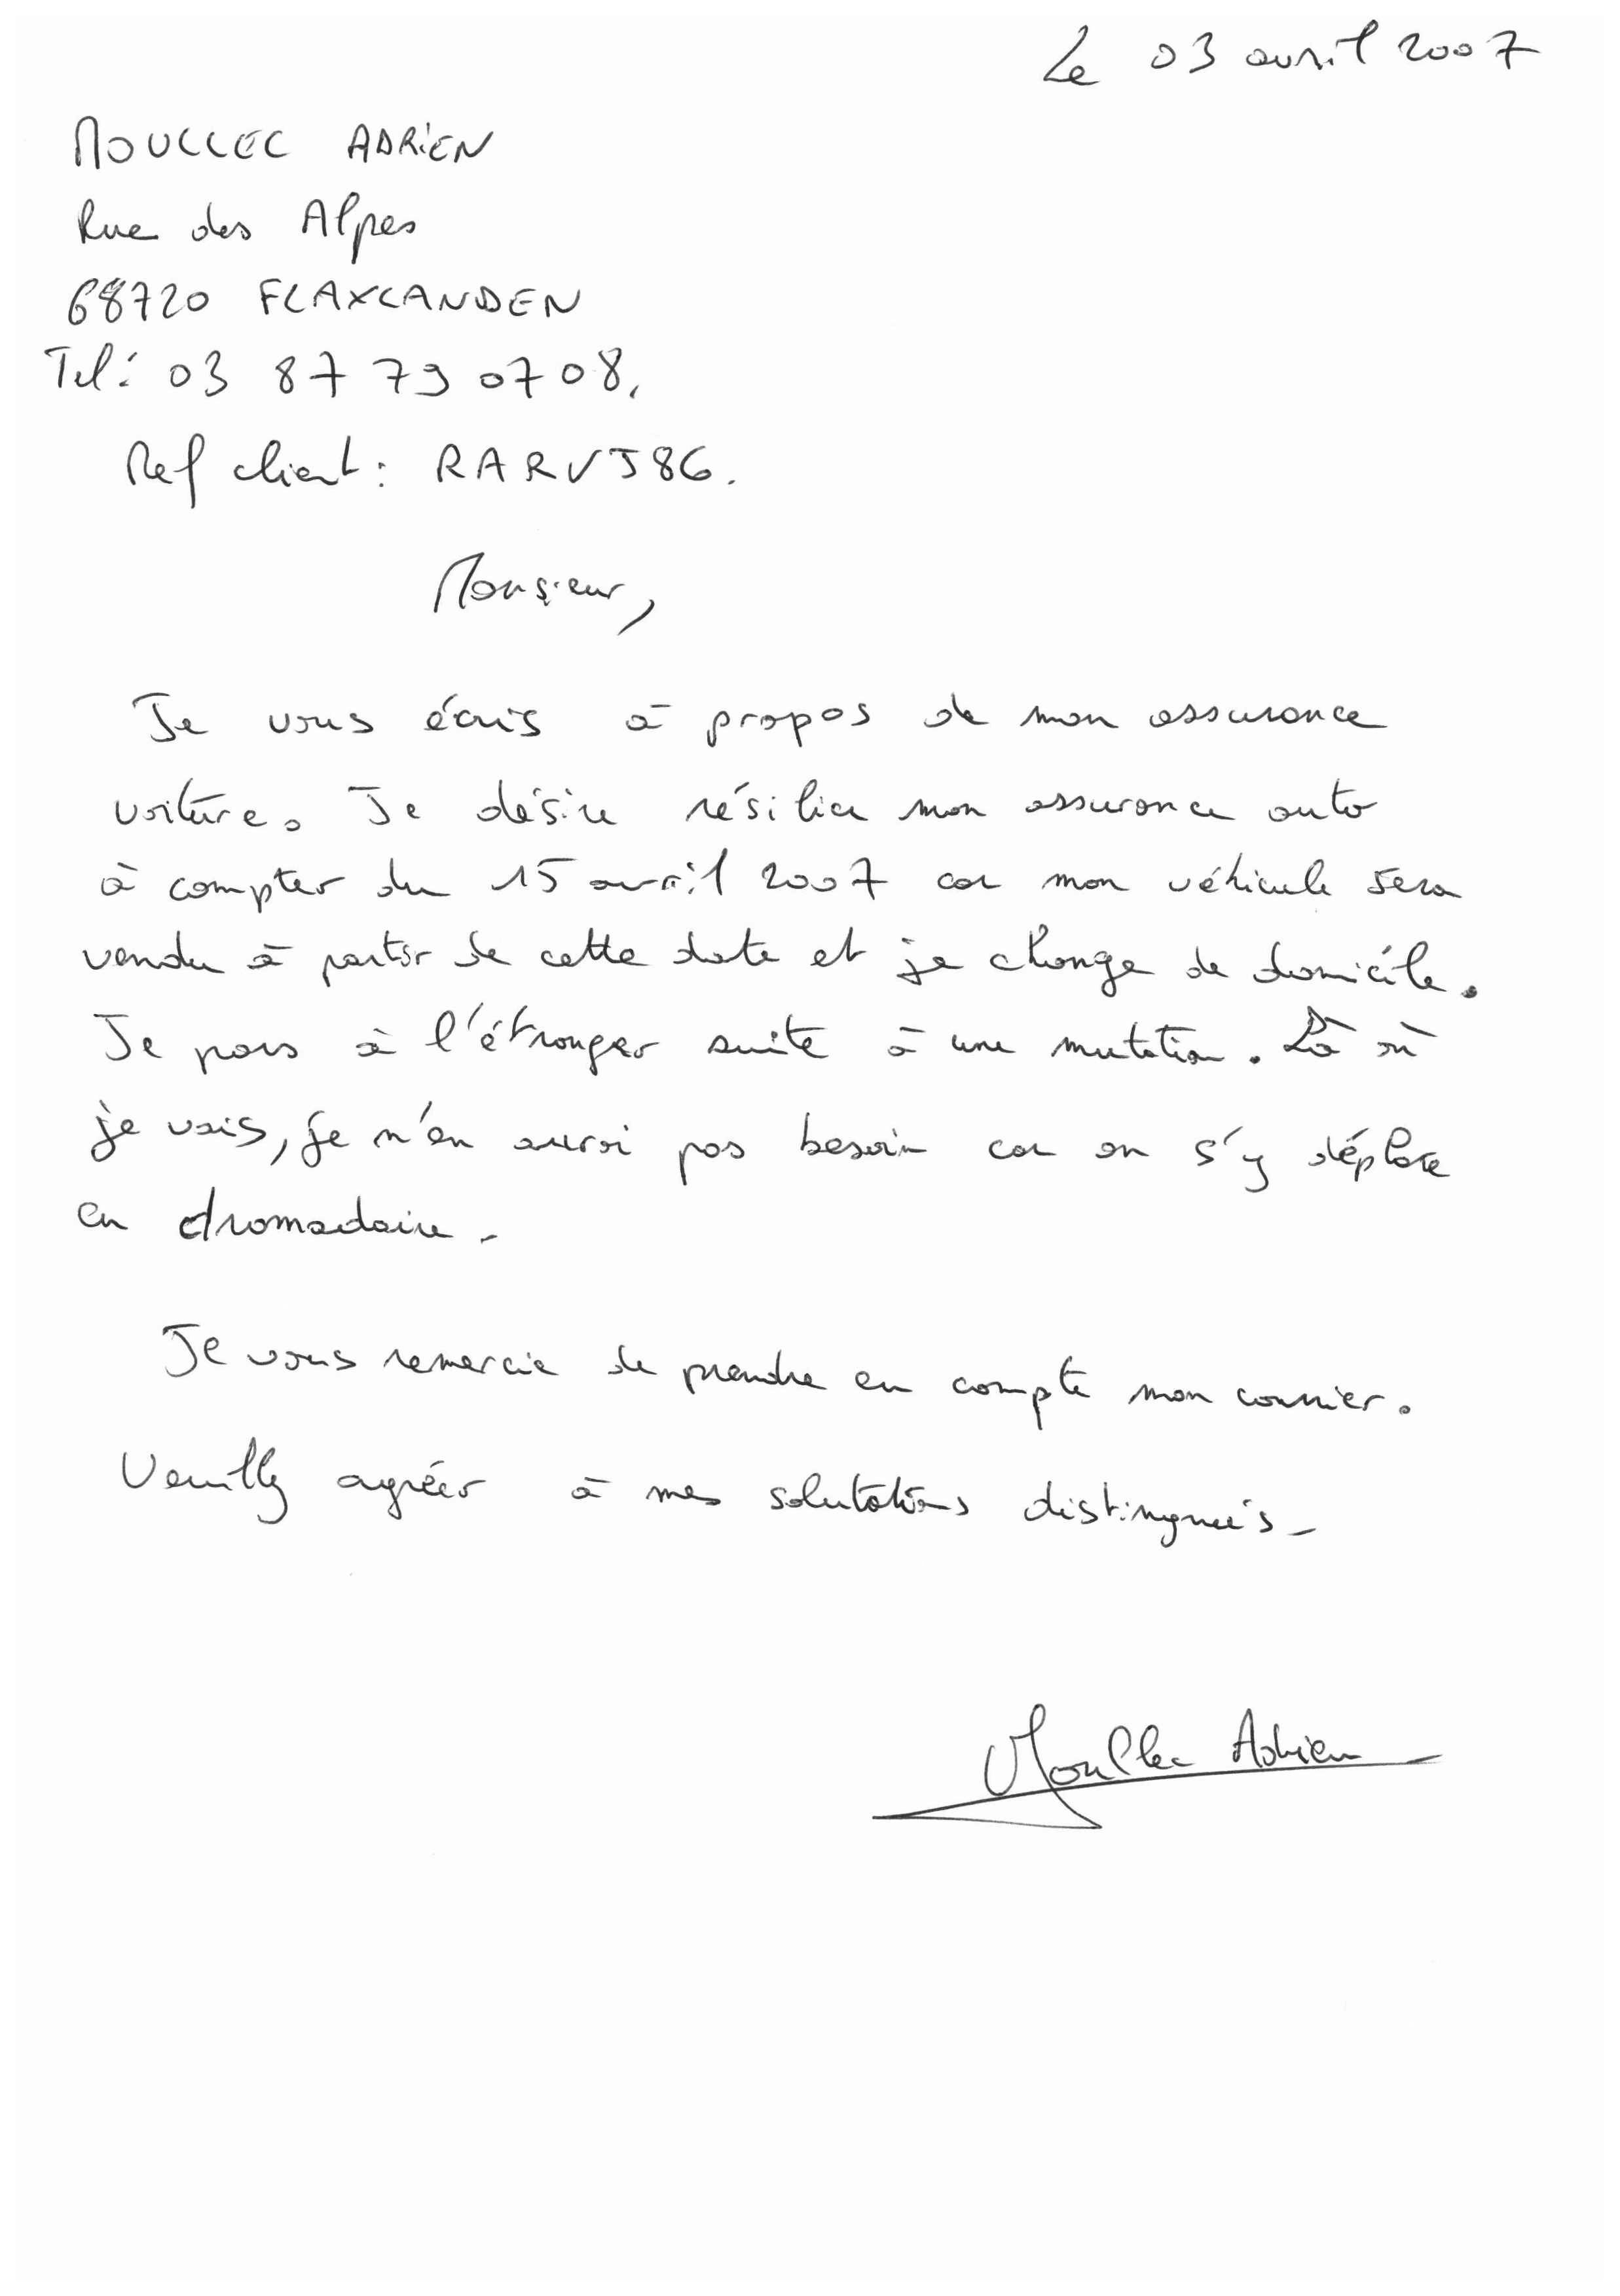 Le 03 avril 2007
MOULLEC ADRIEN
Rue des Alpes
68720 FLAXLANDEN
Tel: 03 87 79 07 08.
Ref client: RARVJ86.
Monsieur,
Je vous écris à propos de mon assurance
voiture. Je désire résilier mon assurance auto
à compter du 15 avril 2007 car mon véhicule sera
vendu à partir de cette date et je change de domicile.
Je pars à l'étranger suite à une mutation. Là où
je vais, je n'en aurai pas besoin car on s'y déplace
en dromadaire.
Je vous remercie de prendre en compte mon courrier.
Veuillez agréer à mes salutations distingués.
Moullec Adrien